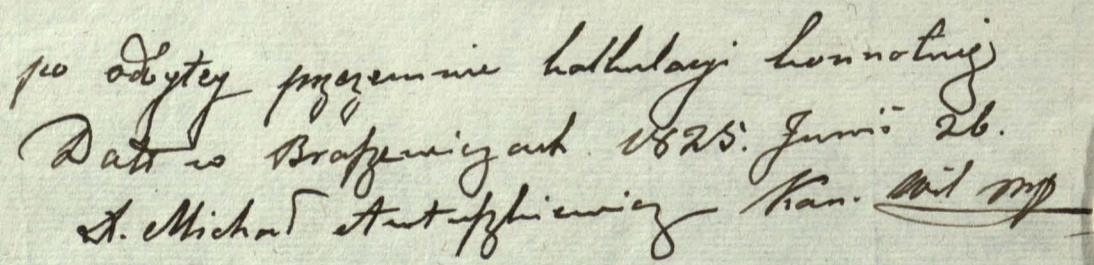 po odbytey przezemnie kalkulacyi konnotuię
Datt w Braszewiczach 1825. Junii 26.
X. Michał Antuszkiewicz Kan. Wil mp